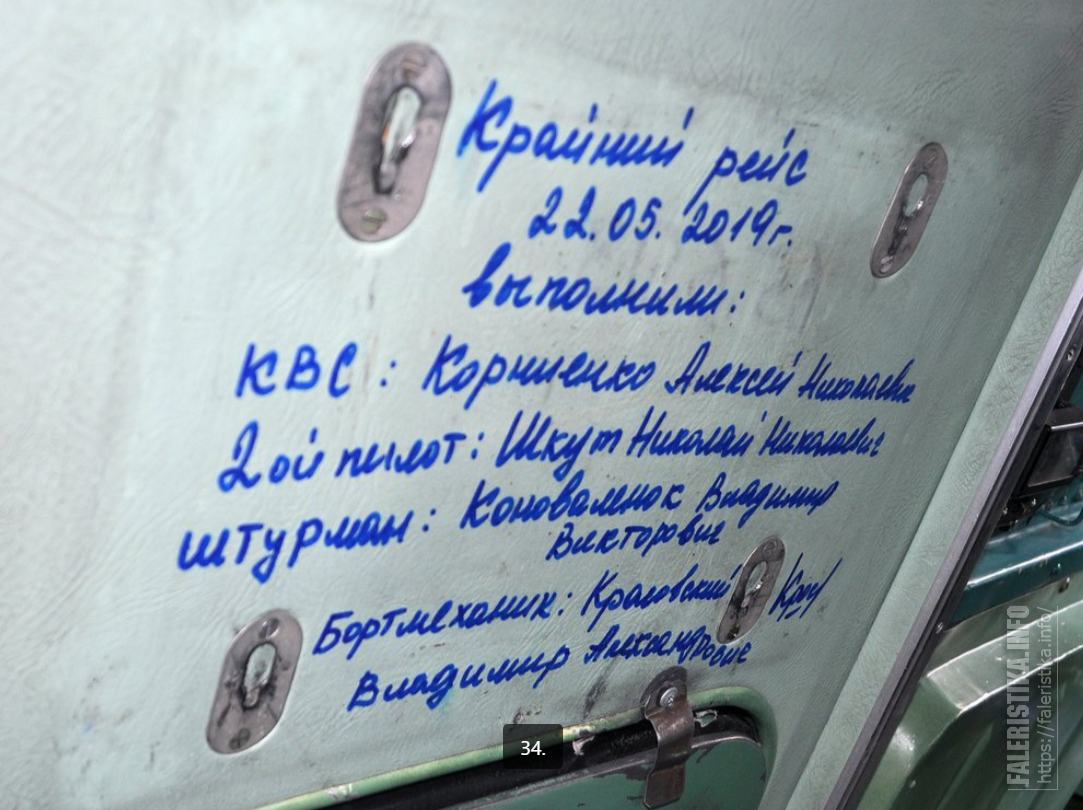 Крайний рейс
22.05.2019г.
выполнили:
КВС: Корниенко Алексей Николаевич
2ой пилот: Шкут Николай Николаевич
штурман: Коновалюк Владимир
Викторович
Бортмеханик:
Владимир Александрович
34.
FALERISTIKA.INFO
https://faleristika.info/